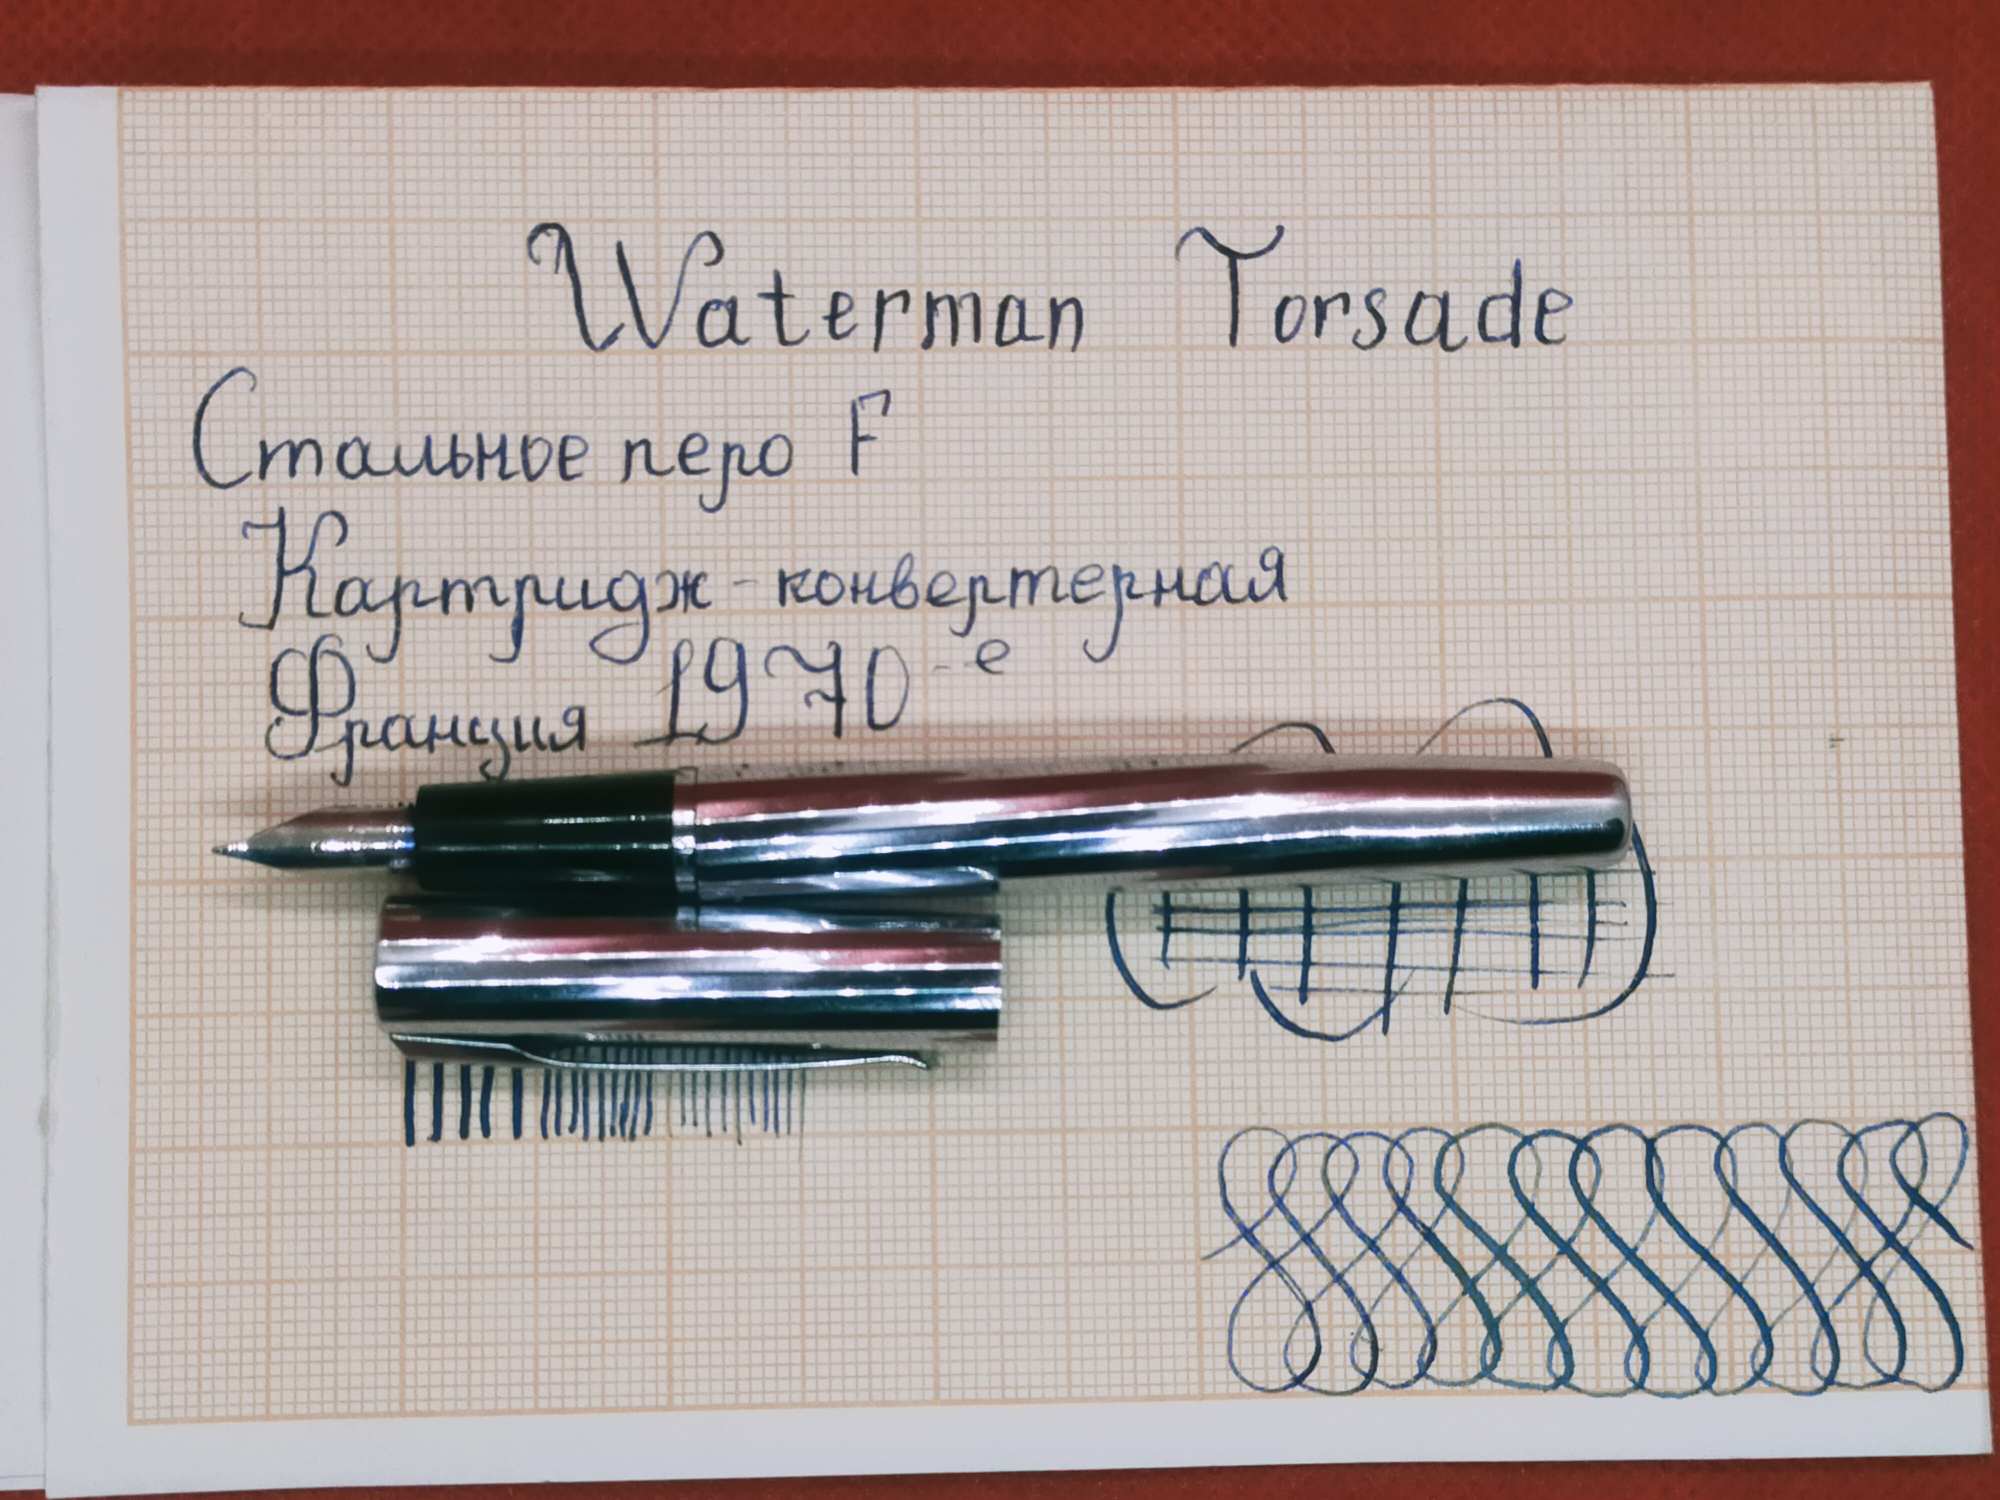 Waterman Torsade
Стальное перо F
Картридж-конвертерная
Франция 1970-е